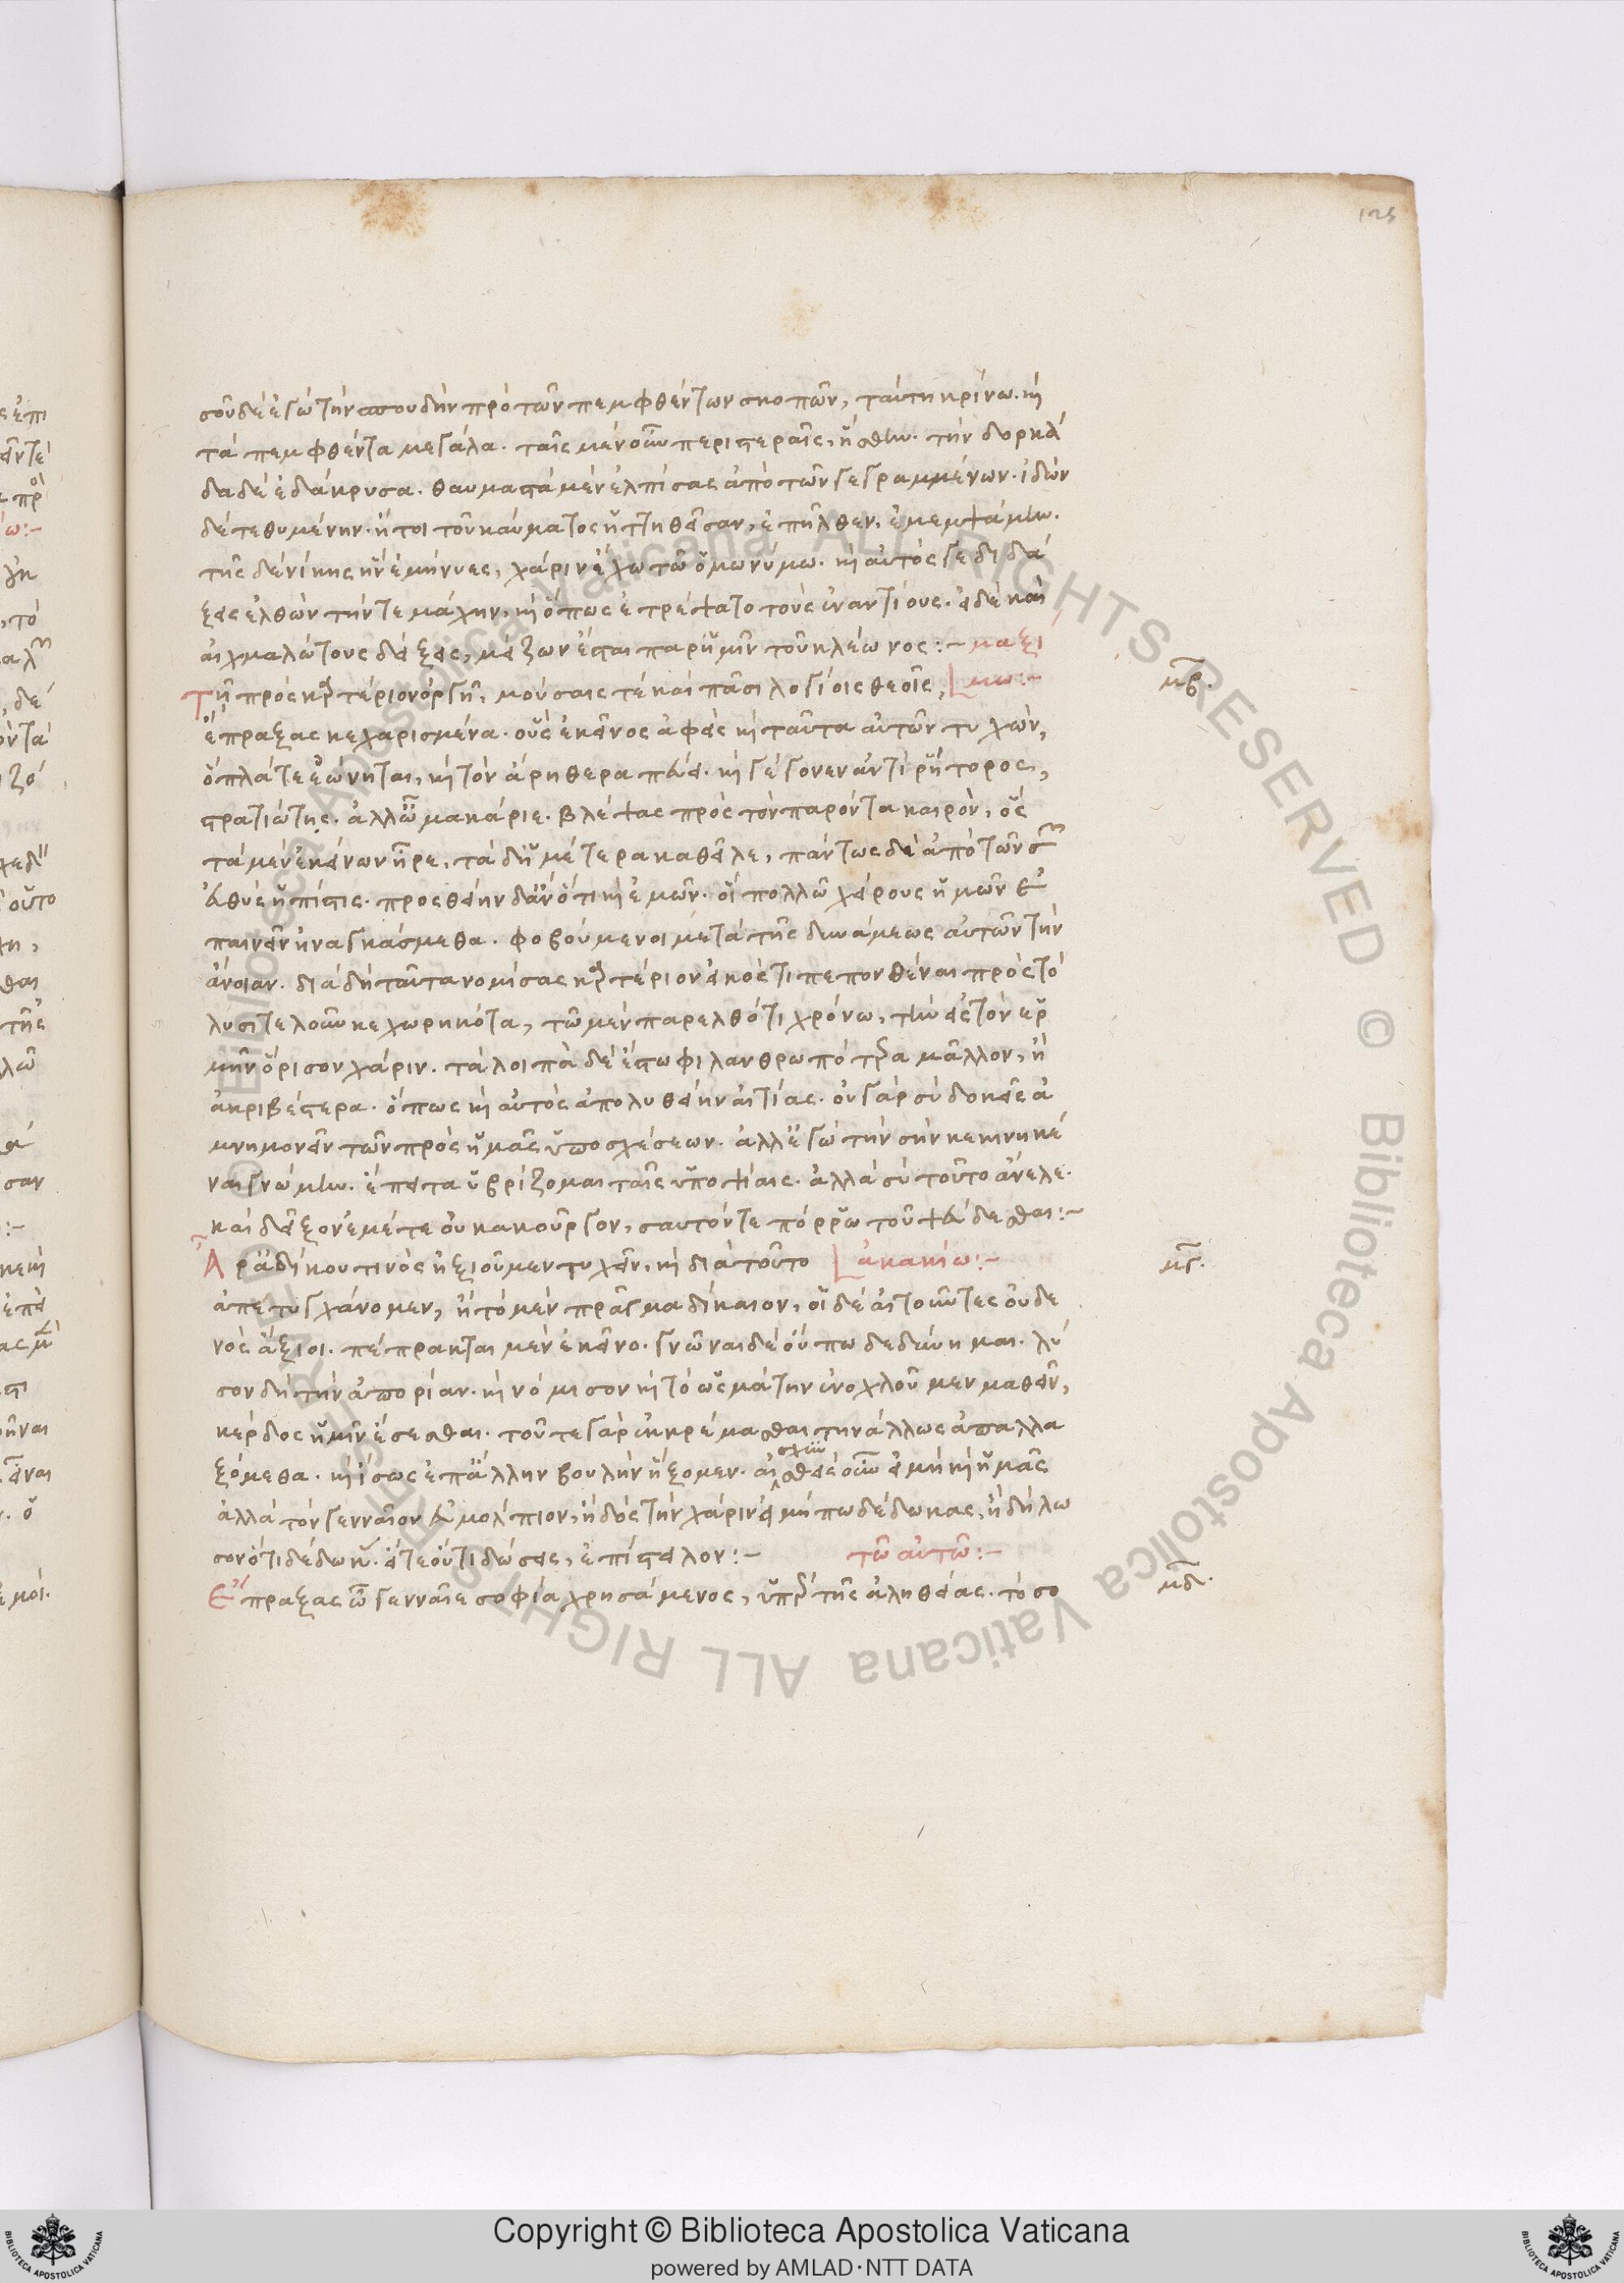 125
σον δὲ ἐγὼ τὴν σπουδὴν πρὸ τῶν πεμφθέντων σκοπῶν, ταύτη κρίνω. καὶ
τὰ πεμφθέντα μεγάλα. ταῖς μὲν οὖν περιστεραῖς, ἥσθην. τὴν δορκά
δα δὲ ἐδάκρυσα. θαυμαστὰ μὲν ἐλπίσας ἀπὸ τῶν γεγραμμένων. ἰδὼν
δὲ τεθυμένην. ἥτοι τοῦ καύματος ἡττηθεῖσαν, ἐπῆλθεν, ἐμεμψάμην.
τῆς δὲ νίκης ἣν ἐμήνυες, χάριν ἔχω τῶ ὁμωνύμω. καὶ αὐτός γε διδά
ξεις ἐλθὼν τήν τε μάχην, καὶ ὅπως ἐτρέψατο τοὺς ἐναντίους. εἰ δὲ καὶ
αἰχμαλώτους δείξεις, μείζων ἔσται παρ' ἡμῖν τοῦ κλέωνος:~ μαξί
Τῆ πρὸς κερτέριον ὀργῆ, μούσαις τὲ καὶ πᾶσι λογίοις θεοῖς, μω:~
μβ.
ἔπραξας κεχαρισμένα. οὓς ἐκεῖνος ἀφεὶς καὶ ταῦτα αὐτῶν τυχών,
ὅπλά τε ἐώνηται, καὶ τὸν ἄρη θεραπεύει. καὶ γέγονεν ἀντὶ ῥήτορος,
στρατιώτης. ἀλλ' ὦ μακάριε. βλέψας πρὸς τὸν παρόντα καιρὸν, ὃς
τὰ μὲν ἐκείνων ἦρε, τὰ δ' ἡμέτερα καθεῖλε, πάντως δὲ ἀπὸ τῶν
εὐθὺς ἡ πίστις. προσθείην δ' ἂν ὅτι καὶ ἐμῶν. οἳ πολλῶ χείρους ἡμῶν ἐ
παινεῖν ἠναγκάσμεθα. φοβούμενοι μετὰ τῆς δυνάμεως αὐτῶν τὴν
ἄνοιαν. διὰ δὴ ταῦτα νομίσας κερτέριον εἰκός τι πεπονθέναι πρὸς τὸ
λυσιτελοῦν κεχωρηκότα, τῶ μὲν παρελθότι χρόνω, τὴν εἰς τὸν ἑρ
μῆν ὅρισον χάριν. τὰ λοιπὰ δὲ ἔστω φιλανθρωπότερα μᾶλλον, ἢ
ἀκριβέστερα. ὅπως καὶ αὐτὸς ἀπολυθείην αἰτίας. οὐ γὰρ σὺ δοκεῖς ἀ
μνημονεῖν τῶν πρὸς ἡμᾶς ὑποσχέσεων. ἀλλ' ἐγὼ τὴν σὴν κεκινηκέ
ναι γνώμην. ἔπειτα ὑβρίζομαι ταῖς ὑποψίαις. ἀλλὰ σὺ τοῦτο ἄνελε.
καὶ δεῖξον ἐμέ τε οὐ κακοῦργον, σαυτόν τε πόρρω τοῦ ψεύδεσθαι:~
Ἆρ' ἀδίκου τινὸς ἠξιοῦμεν τυχεῖν, καὶ διὰ τοῦτο ἀκακίω:~
μγ.
ἀπετυγχάνομεν, ἢ τὸ μὲν πρᾶγμα δίκαιον, οἱ δὲ αἰτοῦντες οὐδε
νὸς ἄξιοι. πέπρακται μὲν ἐκεῖνο. γνῶναι δὲ οὔπω δεδύνημαι. λύ
σον δὴ τὴν ἀπορίαν. καὶ νόμισον καὶ τὸ ὡς μάτην ἐνοχλοῦμεν μαθεῖν,
κέρδος ἡμῖν ἔσεσθαι. τοῦ τε γὰρ ἐκκρέμασθαι τηνάλλως ἀπαλλα
ξόμεθα. καὶ ἴσως ἐπ' ἄλλην βουλὴν ἥξομεν. αἰσχυνθεὶς οὖν εἰ μὴ καὶ ἡμᾶς
ἀλλὰ τὸν γενναῖον εὐμόλπιον, ἢ δὸς τὴν χάριν εἰ μήπω δέδωκας, ἢ δήλω
σον ὅτι δέδωκας. εἴτε οὔτι δώσεις, ἐπίστειλον:~ τῶ αὐτῶ:~
Εὖ ἔπραξας ὦ γενναῖε σοφία χρησάμενος, ὑπὲρ τῆς ἀληθείας. τὸ σο
μδ.
Copyright © Biblioteca Apostolica Vaticana
powered by AMLAD·NTT DATA